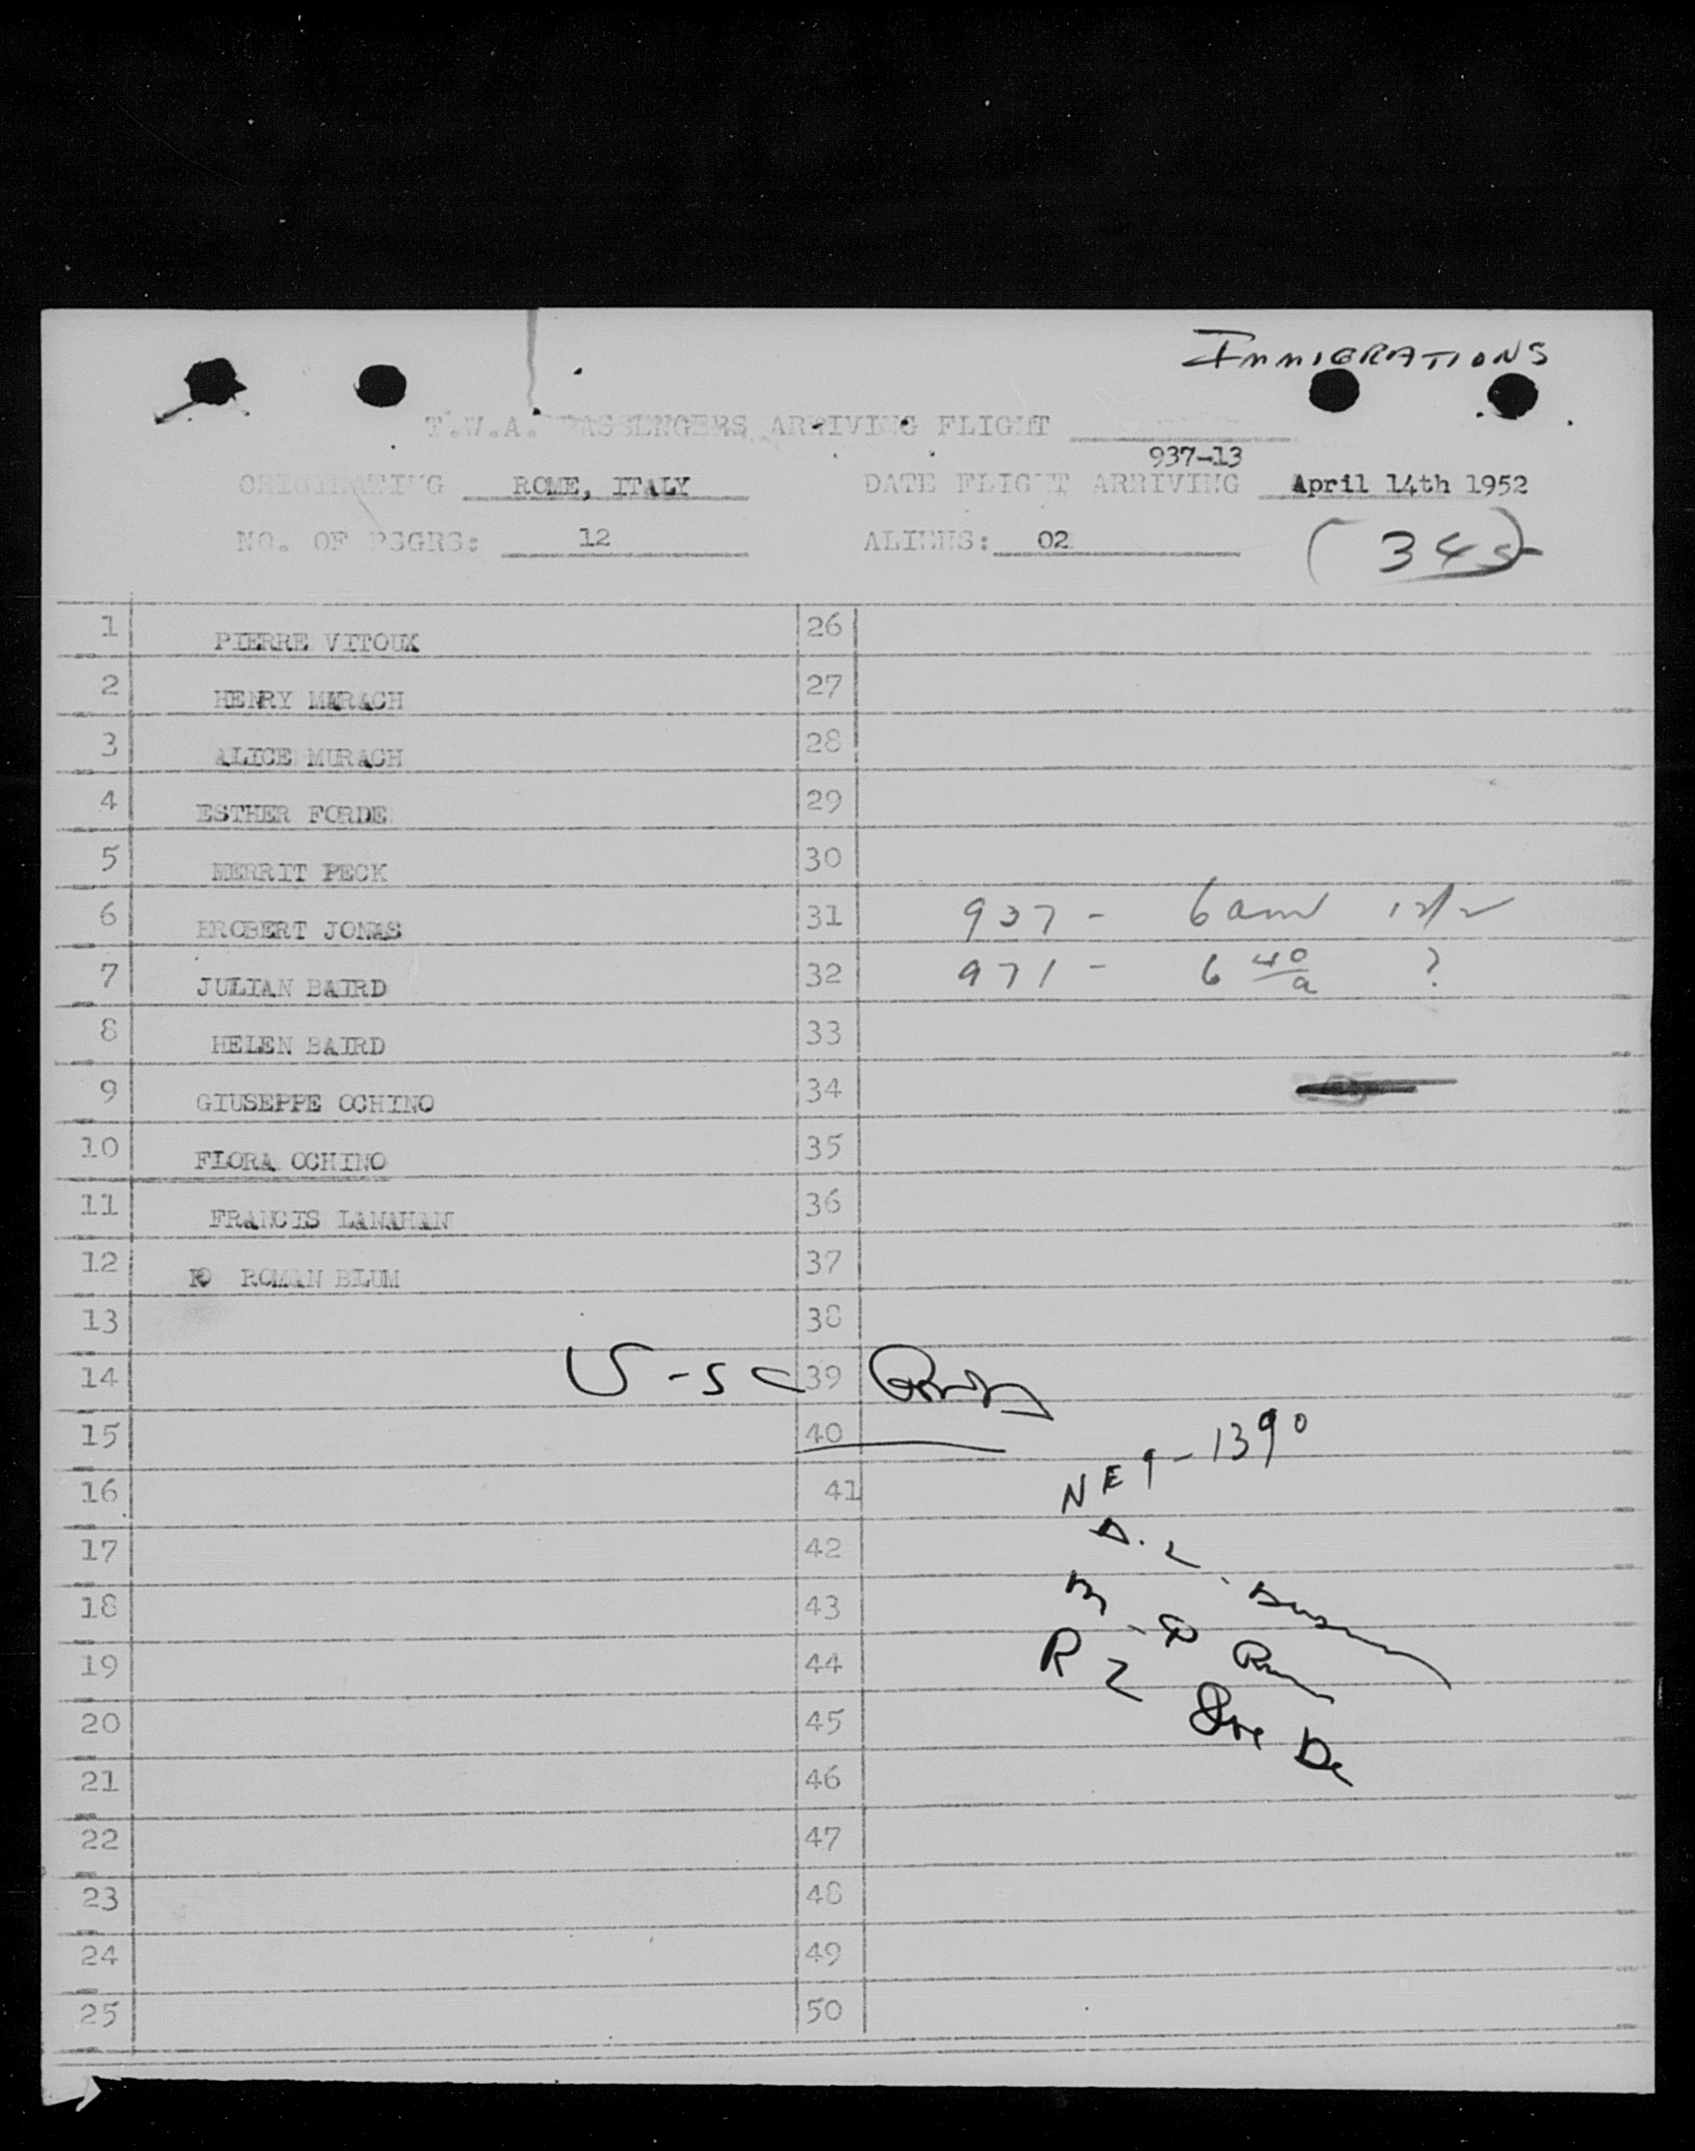 IMMIGRATIONS
T.W.A. PASSENGERS ARRIVING FLIGHT
937-13
ORIGINATING ROME, ITALY DATE FLIGHT ARRIVING April 14th 1952
NO. OF PSGRS: 12 ALIENS: 02 (345)
1 PIERRE VITOUX 26
2 HENRY MURACH 27
3 ALICE MURACH 28
4 ESTHER FORDE 29
5 MERRIT PECK 30
6 RROBERT JONAS 31 937 -
7 JULIAN BAIRD 32 971 - 6 40/a ?
8 HELEN BAIRD 33
9 GIUSEPPE OCHINO 34
10 FLORA OCHINO 35
11 FRANCIS LANAHAN 36
12 RO ROMAN BLUM 37
13 38
14 39
15 40
NE 9-1390
16 41
17 42
18 43
19 44
20 45
21 46
22 47
23 48
24 49
25 50